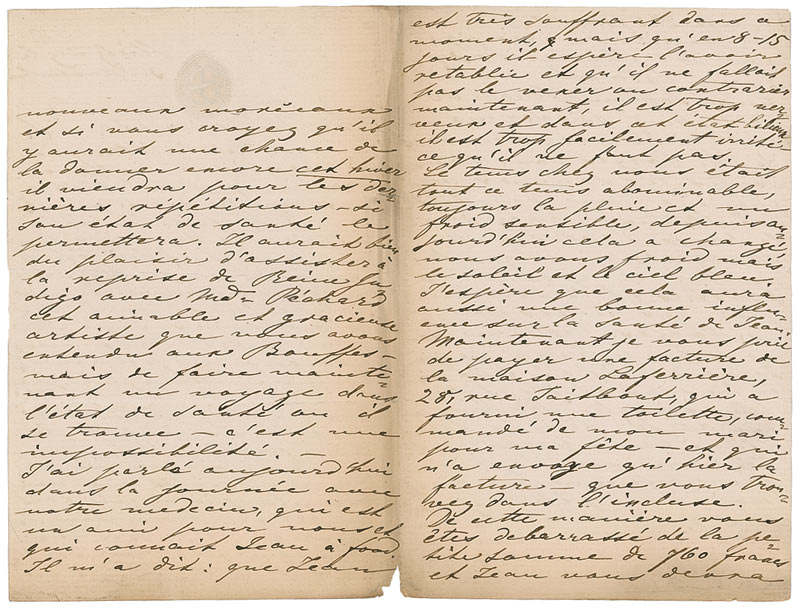 nouveaux morceaux
et si vous croyez qu'il
y aurait une chance de
la donner encore cet hiver
il viendra pour les der-
nières répétitions – si
son état de santé le
permettera. Il aurait bien
du plaisir d'assister à
la reprise de Reine In
digo avec Mdm Péchard
cet aimable et gracieuse
artiste que vous avons
entendu aux Bouffes –
mais de faire mainte-
nant un voyage dans
l'état de santé où il
se trouve – c'est une
impossibilité. –
J'ai parlé aujourd'hui
dans la journée avec
notre medecin, qui est
un ami pour nous et
qui connait Jean à fond
Il m'a dit: que Jean
est très souffrant dans ce
moment, mais qu'en 8–15
jours il espère l'avoir
retablie et qu'il ne fallait
pas le vexer ou contrarier
maintenant, il est trop ner
veux et dans cet état bilieux
il est trop facilement irrité
ce qu'il ne faut pas.
Le tems chez nous était
tout ce tems abominable,
toujours la pluie et un
froid sensible, depuis au-
jourd'hui cela a changé,
nous avons froid mais
le soleil et le ciel bleu.
J'espère que cela aura
aussi une bonne influ-
ence sur la santé de Jean.
Maintenant je vous prie
de payer une facture de
la maison Laferrière,
28, rue Taitbout, qui a
fourni une toilette, com-
mandé de mon mari
pour ma fête – et qui
n'a envoyé qu'hier la
facture – que vous trou-
vez dans l'incluse.
De cette manière vous
êtes debarrassé de la pe-
tite somme de 760 francs
et Jean vous devra